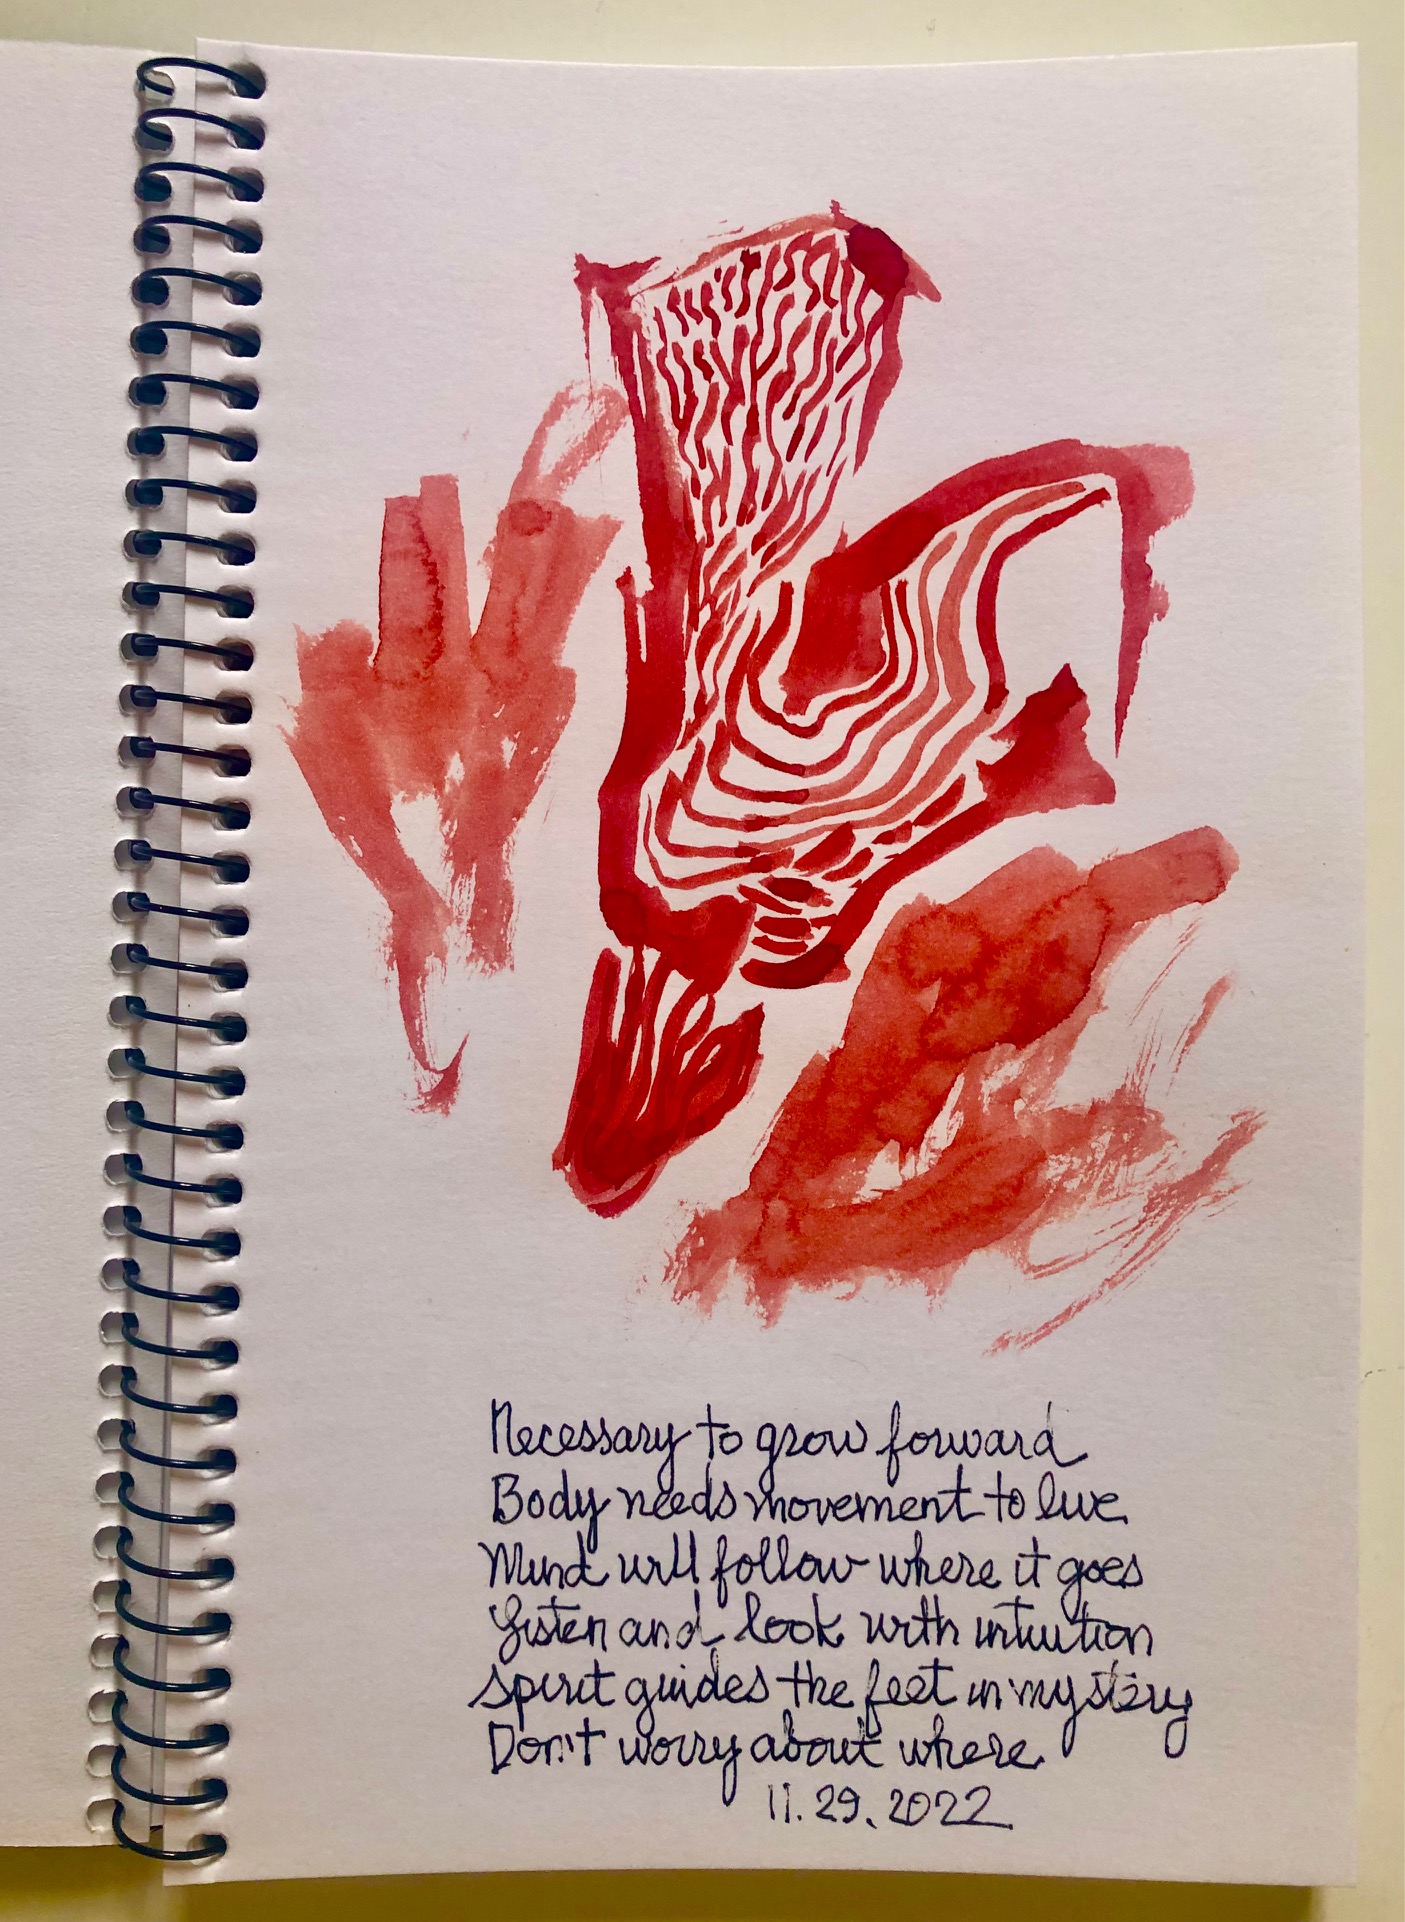 Necessary to grow forward
Body needs movement to live
Mind will follow where it goes
Listen and look with intuition
Spirit guides the feet in mystery
Don't worry about where
11.29.2022